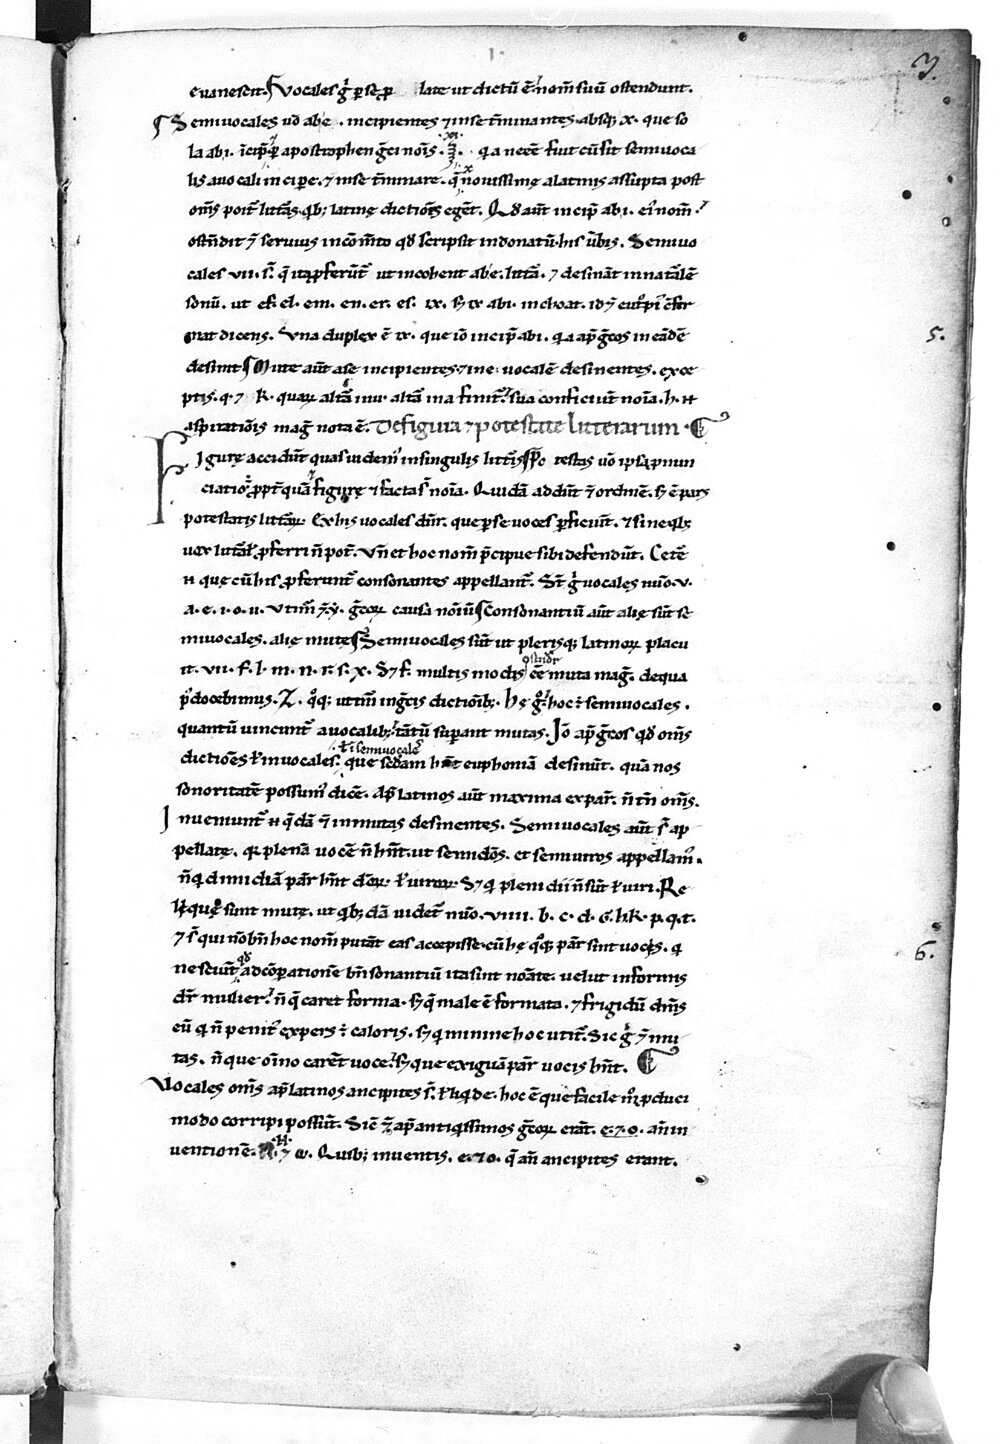 3.
euanescit. Vocales g̊ ꝑ se ꝓlate ut dictū ē nom̄ suū ostendunt.
Semiuocales ū ab e. incipientes ⁊ in se t̄minantes. absq; x. que so
la ab .i. incip̄ ꝑ apostrophen gr̄ci nōis .xi. q̄a necēē fuit cū sit semiuoca
lis a uocali incipe. ⁊ in se t̄minare. q̄ nouissime a latinis assūpta post
om̄s ponit̄ litt̄as. q̄b; latinę dictiōes egēt. Qd̄ aūt incip̄ ab i. ei nom̄
ostn̄dit ⁊ seruius in cōm̄to qd̄ scripsit in donatū his ūbis. Semiuo
cales .vii. s̄. q̄ ita ꝓferūt̄ ut incohent ab e. litt̄a. ⁊ desināt in natālē
sonū. ut ef. el. em. en. er. es. ix. s; ix ab i. inchoat. id ⁊ eut̄opi cfir
mat dicens. Vna duplex ē ix. que iō incip̄ ab i. q̄a ap̄ gr̄cos in eādē
desinit. Mute aūt a se incipientes ⁊ in e uocalē desinentes. exce
ptis. q. ⁊ k. quaꝝ altā in u. altā in a finit̄. sua conficiūt nōia. h. n̄
aspiratiōis mag̃ nota ē. De figura ⁊ potestate litterarum.
Figurę accidūt quas uidem̄ in singulis litt̄is. Potestas ūo ipsa ꝓnun
ciatio. ꝓpt̄ quā ⁊ figurę ⁊ facta s̄ nōia. Quidā addūt ⁊ ordinē. s; ē pars
potestatis litt̄aꝝ. Ex his uocales dn̄r. que ꝑ se uoces ꝑficiūt. ⁊ sine q̄b;
uox litt̄al̄ ꝓferri n̄ pot̄. Vn̄ et hoc nom̄ p̄cipue sibi defendūt. Cetē
n̄ que cū his ꝓferunt̄ consonantes appellant̄. St̄ g̊ uocales nūo .v.
a. e. i. o. u. Vtim̄ ⁊ y. gr̄coꝝ causa nōiū. Consonantiū aūt alię sūt se
miuocales. alię mute. Semiuocales sūt ut plerisq; latinoꝝ placu
it. vii. f. l. m. n. r. s. x. S; f. multis modis ostēdit̄ ēē muta mag̃. de qua
p̄ docebimus. Z. q̊q; utim̄ in gr̄cis dictiōib;. Hę g̊ hoc ē semiuocales.
quantū uincunt̄ a uocalib;. tātū suꝑant mutas. Iō ap̄ gr̄cos qd̄ om̄s
dictiōes ł in uocales. ł i semiuocalē que sedam hn̄t euphoniā desinūt. quā nos
sonoritatē possum̄ dicē. Ap̄ latinos aūt maxima ex par̄. n̄ tn̄ om̄s.
Inueniunt̄ n̄ q̄dā ⁊ in mutas desinentes. Semiuocales aūt s̄ ap
pellatę. q̄ꝛ plenā uocē n̄ hn̄t. ut semideōs. et semiuiros appellam̄.
n̄ q̄ dimidiā par̄ hn̄t deoꝝ. ł uiroꝝ. S; q̄ pleni dii n̄ sūt ł uiri. Re
liquę g̊ sunt mutę. ut q̄b;dā uidet̄ nūo. viiii. b. c. d. g. h. k. p. q. t.
⁊ s̄ qui nō bn̄ hoc nom̄ putāt eas accepisse. cū hę q̊q; par̄ sint uocis. q̄
nesciūt qd̄ ad cōꝑationē bn̄ sonantiū ita sint noāte. uelut informis
dr̄ mulier. n̄ q̄ caret forma. s; q̄ male ē formata. ⁊ frigidū dm̄s
eū q̄ n̄ penit̄ expers ē caloris. s; q̄ minime hoc utit̄. Sic g̊ ⁊ mu
tas. n̄ que om̄ino carēt uoce. s; que exiguā par̄ uocis hn̄t.
Vocales om̄s ap̄ latinos ancipites s̄. ł liq̄de. hoc ē que facile m̊ ꝓduci
modo corripi possūt. Sic ⁊ ap̄ antiq̄ssimos gr̄coꝝ erāt. e. ⁊ o. añ in
uentionē. H. ⁊ ω. Quib; inuentis. e. ⁊ o. q̄ añ ancipites erant.
5.
6.